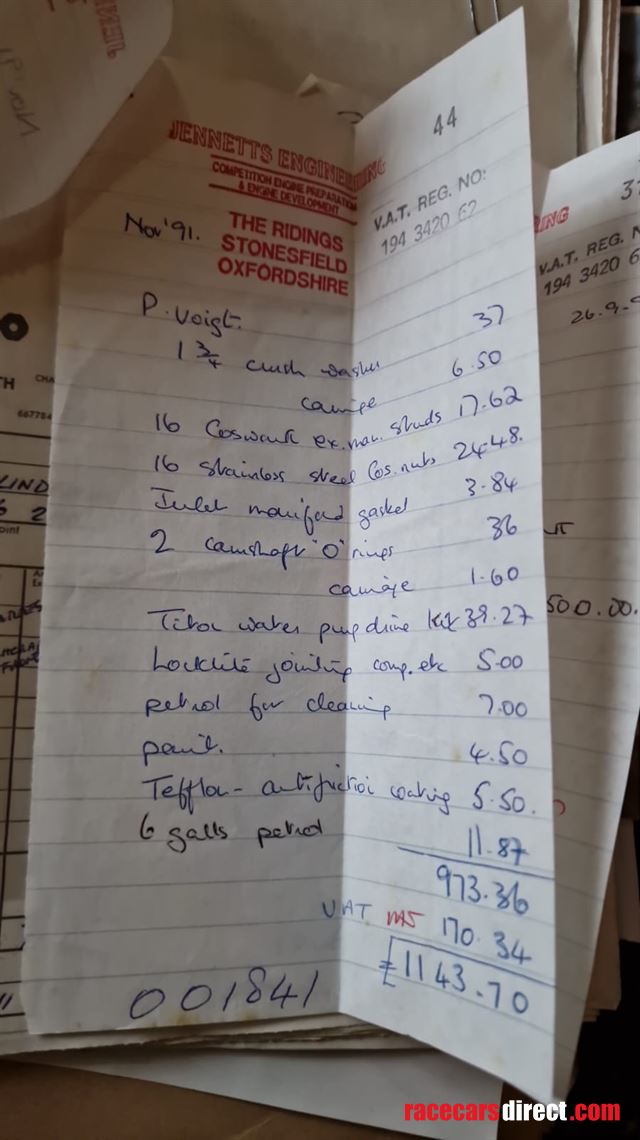 44
JENNETTS ENGINEERING
COMPETITION ENGINE PREPARATION
& ENGINE DEVELOPMENT
V.A.T. REG. NO:
194 3420 62
Nov '91.
THE RIDINGS
STONESFIELD
OXFORDSHIRE
P. Voigt. 37
1 3/4 crush washer 6.50
carrige
16 Cosworth ex. man. studs 17.62
16 stainless steel Cos. nuts 24.48.
Inlet manifold gasket 3.84
2 camshaft "O" rings 36
carrige 1.60
water pump drive kit 39.27
Locktite jointing comp. etc 5.00
petrol for cleaning 7.00
paint. 4.50
Tefflon - antifriction coating 5.50.
6 galls petrol 11.87
973.36
VAT 170.34
£1143.70
001841
37
RING
V.A.T. REG. N
194 3420 6
26.9.9
500.00.
TH
CHA
66778
LIND
racecarsdirect.com